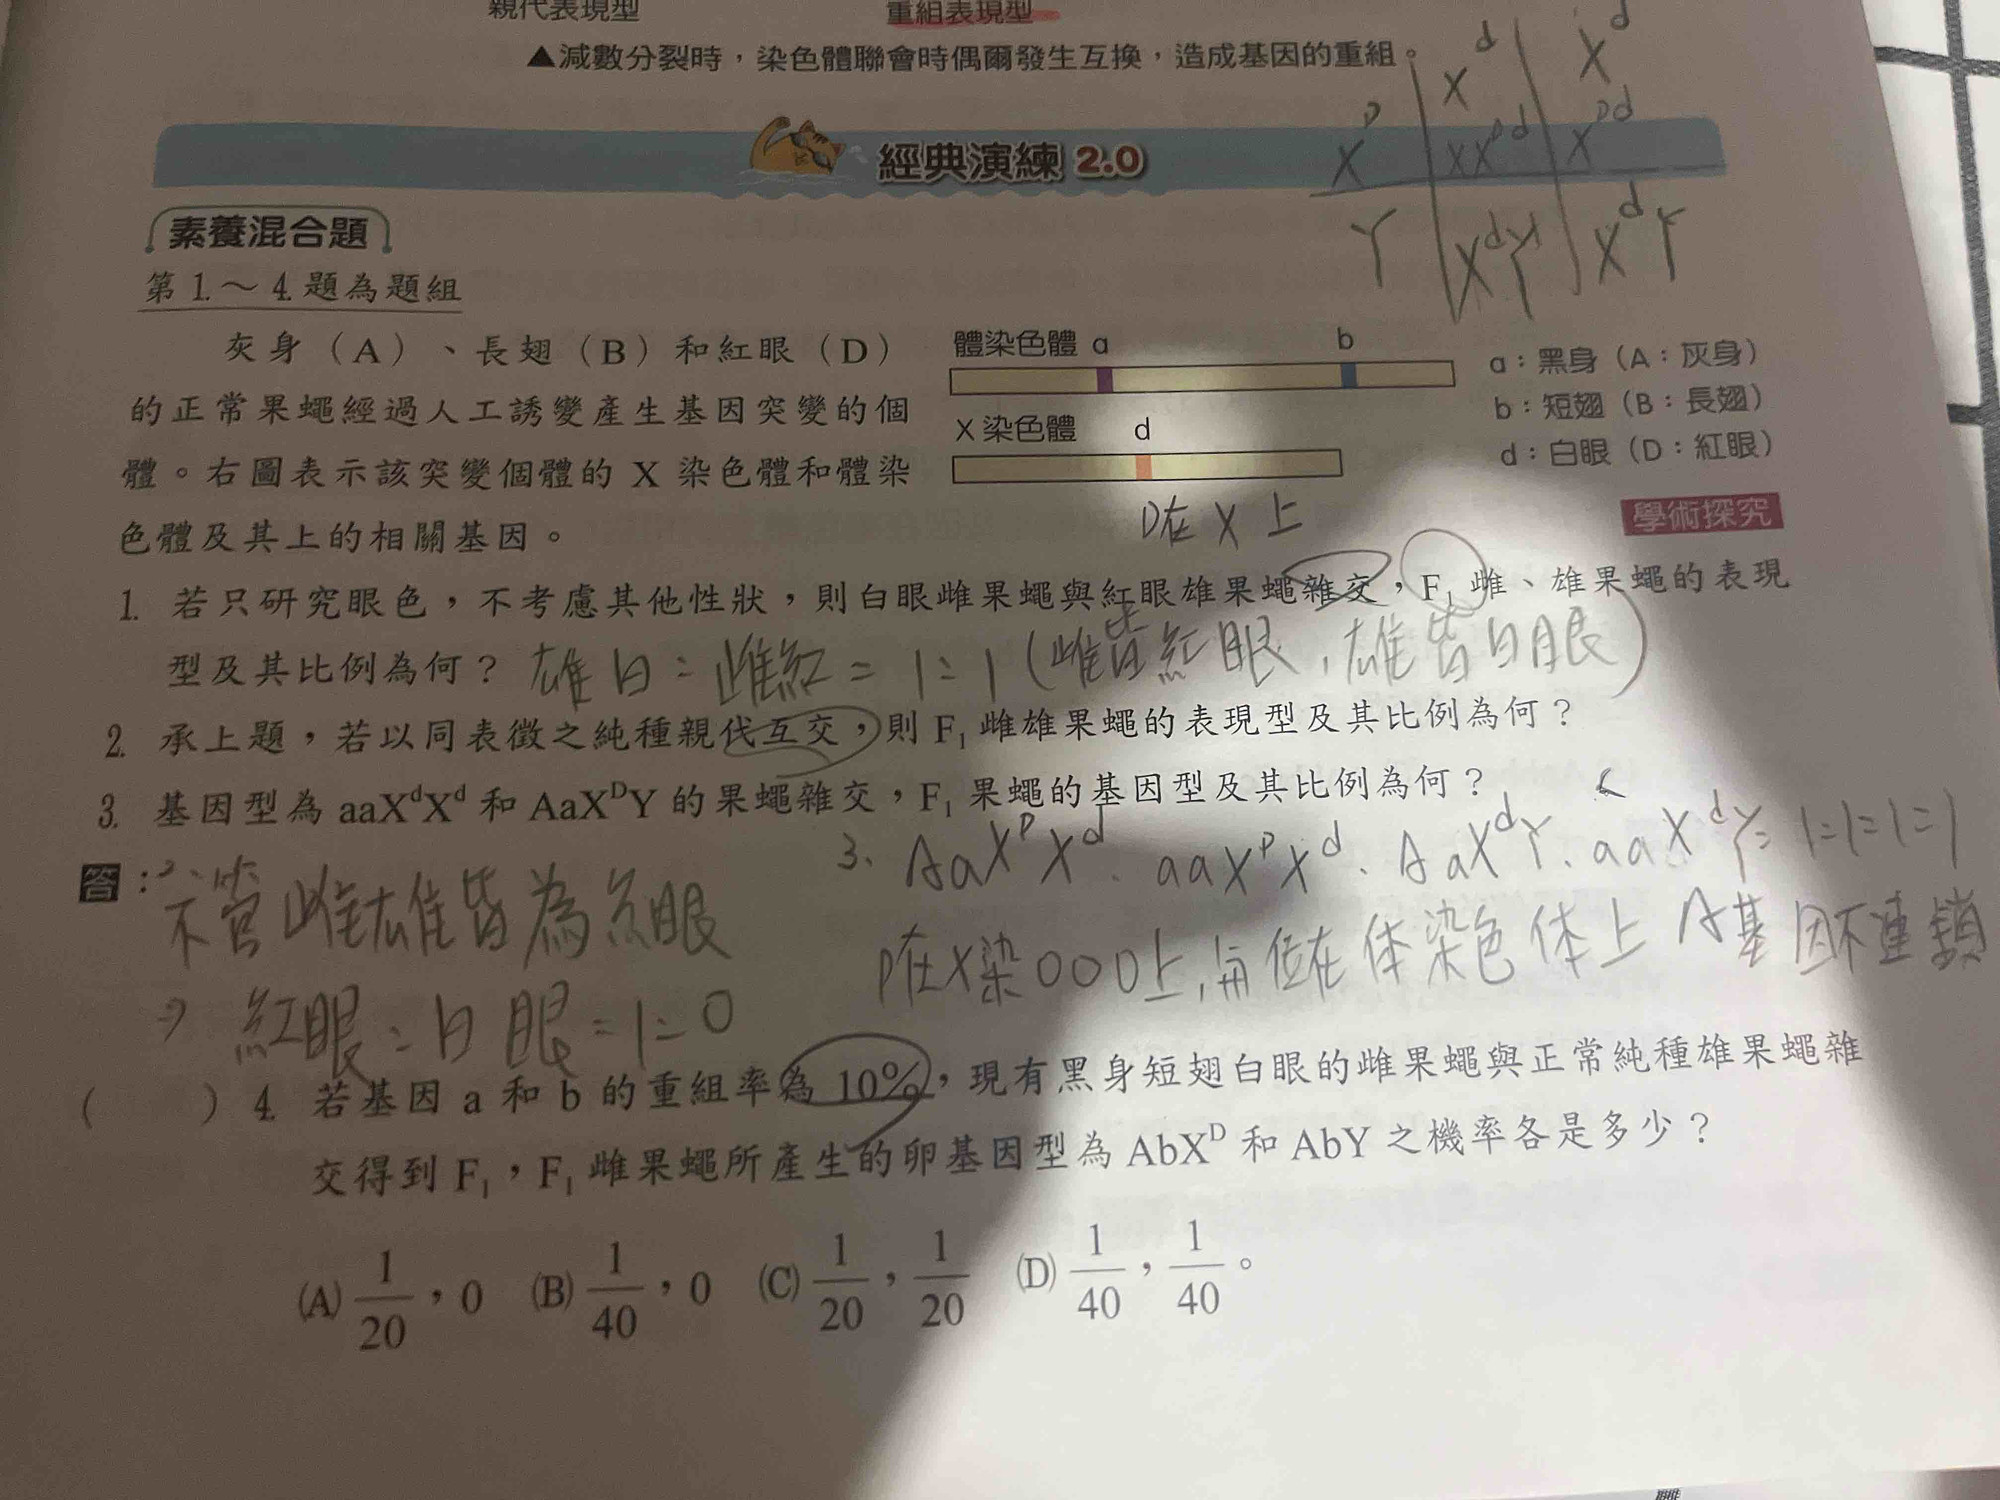 親代表現型　重組表現型
▲減數分裂時，染色體聯會時偶爾發生互換，造成基因的重組。
X^d X^d
X^D XX^Dd X^Dd
Y X^dY X^dY
經典演練 2.0
素養混合題
第 1.～4. 題為題組
灰身（A）、長翅（B）和紅眼（D）
的正常果蠅經過人工誘變產生基因突變的個
體。右圖表示該突變個體的 X 染色體和體染
色體及其上的相關基因。
體染色體 a b
X 染色體 d
a：黑身（A：灰身）
b：短翅（B：長翅）
d：白眼（D：紅眼）
D在 X 上
學術探究
1. 若只研究眼色，不考慮其他性狀，則白眼雌果蠅與紅眼雄果蠅雜交，F₁ 雌、雄果蠅的表現
型及其比例為何？ 雄白：雌紅＝1：1（雌皆紅眼，雄皆白眼）
2. 承上題，若以同表徵之純種親代互交，則 F₁ 雌雄果蠅的表現型及其比例為何？
3. 基因型為 aaX^dX^d 和 AaX^DY 的果蠅雜交，F₁ 果蠅的基因型及其比例為何？
3、AaX^DX^d、aaX^DX^d、AaX^dY、aaX^dY＝1：1：1：1
答：2、
不管雌雄皆為紅眼
D在X染000上，與位在体染色体上A基因不連鎖
⇒ 紅眼：白眼＝1：0
（　　）4. 若基因 a 和 b 的重組率為 10%，現有黑身短翅白眼的雌果蠅與正常純種雄果蠅雜
交得到 F₁，F₁ 雌果蠅所產生的卵基因型為 AbX^D 和 AbY 之機率各是多少？
(A) 1/20，0　(B) 1/40，0　(C) 1/20，1/20　(D) 1/40，1/40。